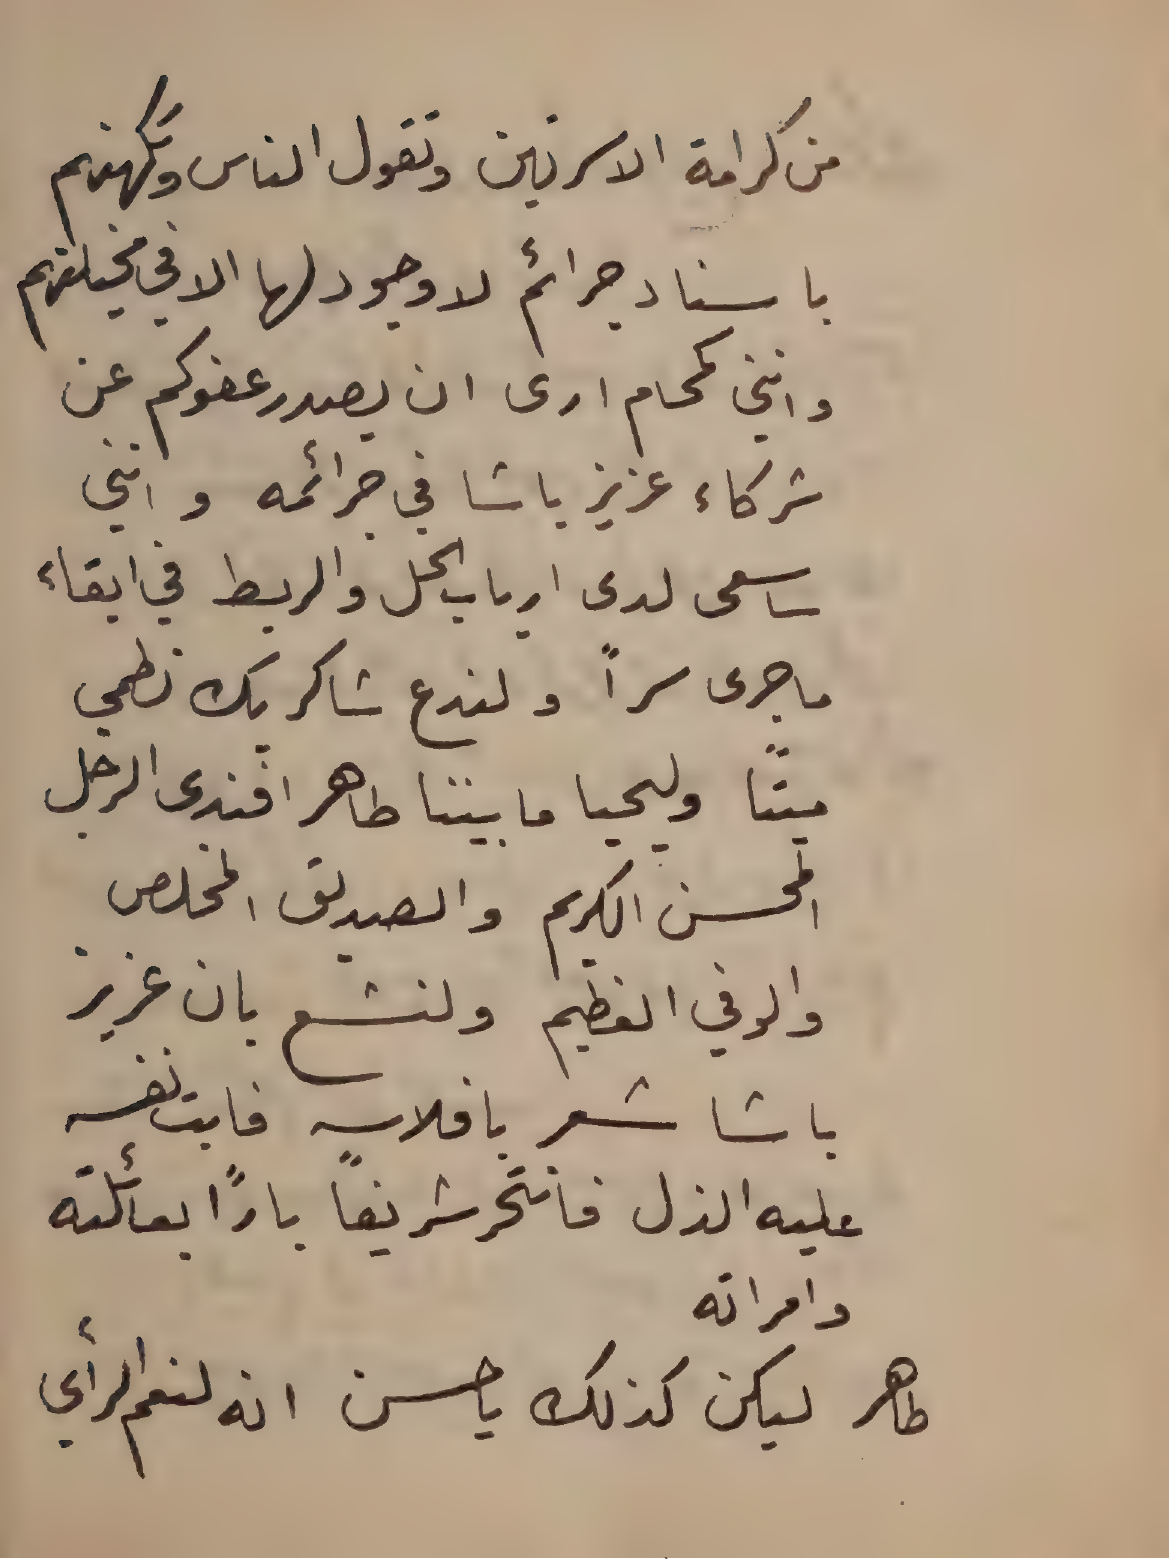 من كرامة الاسرتين وتقول الناس وتكهنهم
باسناد جرائم لا وجود لها الا في مخيلتهم
وانني كمحام ارى ان يصدر عفوكم عن
شركاء عزيز باشا في جرائمه وانني
ساسعى لدى ارباب الحل والربط في ابقاء
ما جرى سراً ولندع شاكر بك نظمي
ميتًا وليحيا ما بيننا طاهر افندى الرجل
المحسن الكريم والصديق المخلص
والوفي العظيم ولنشع بان عزيز
باشا شعر بافلاسه فابت نفسه
عليه الذل فانتحر شريفاً بارًا بعائلته
وامراته
طاهر ليكن كذلك يا حسن انه لنعم الرأي